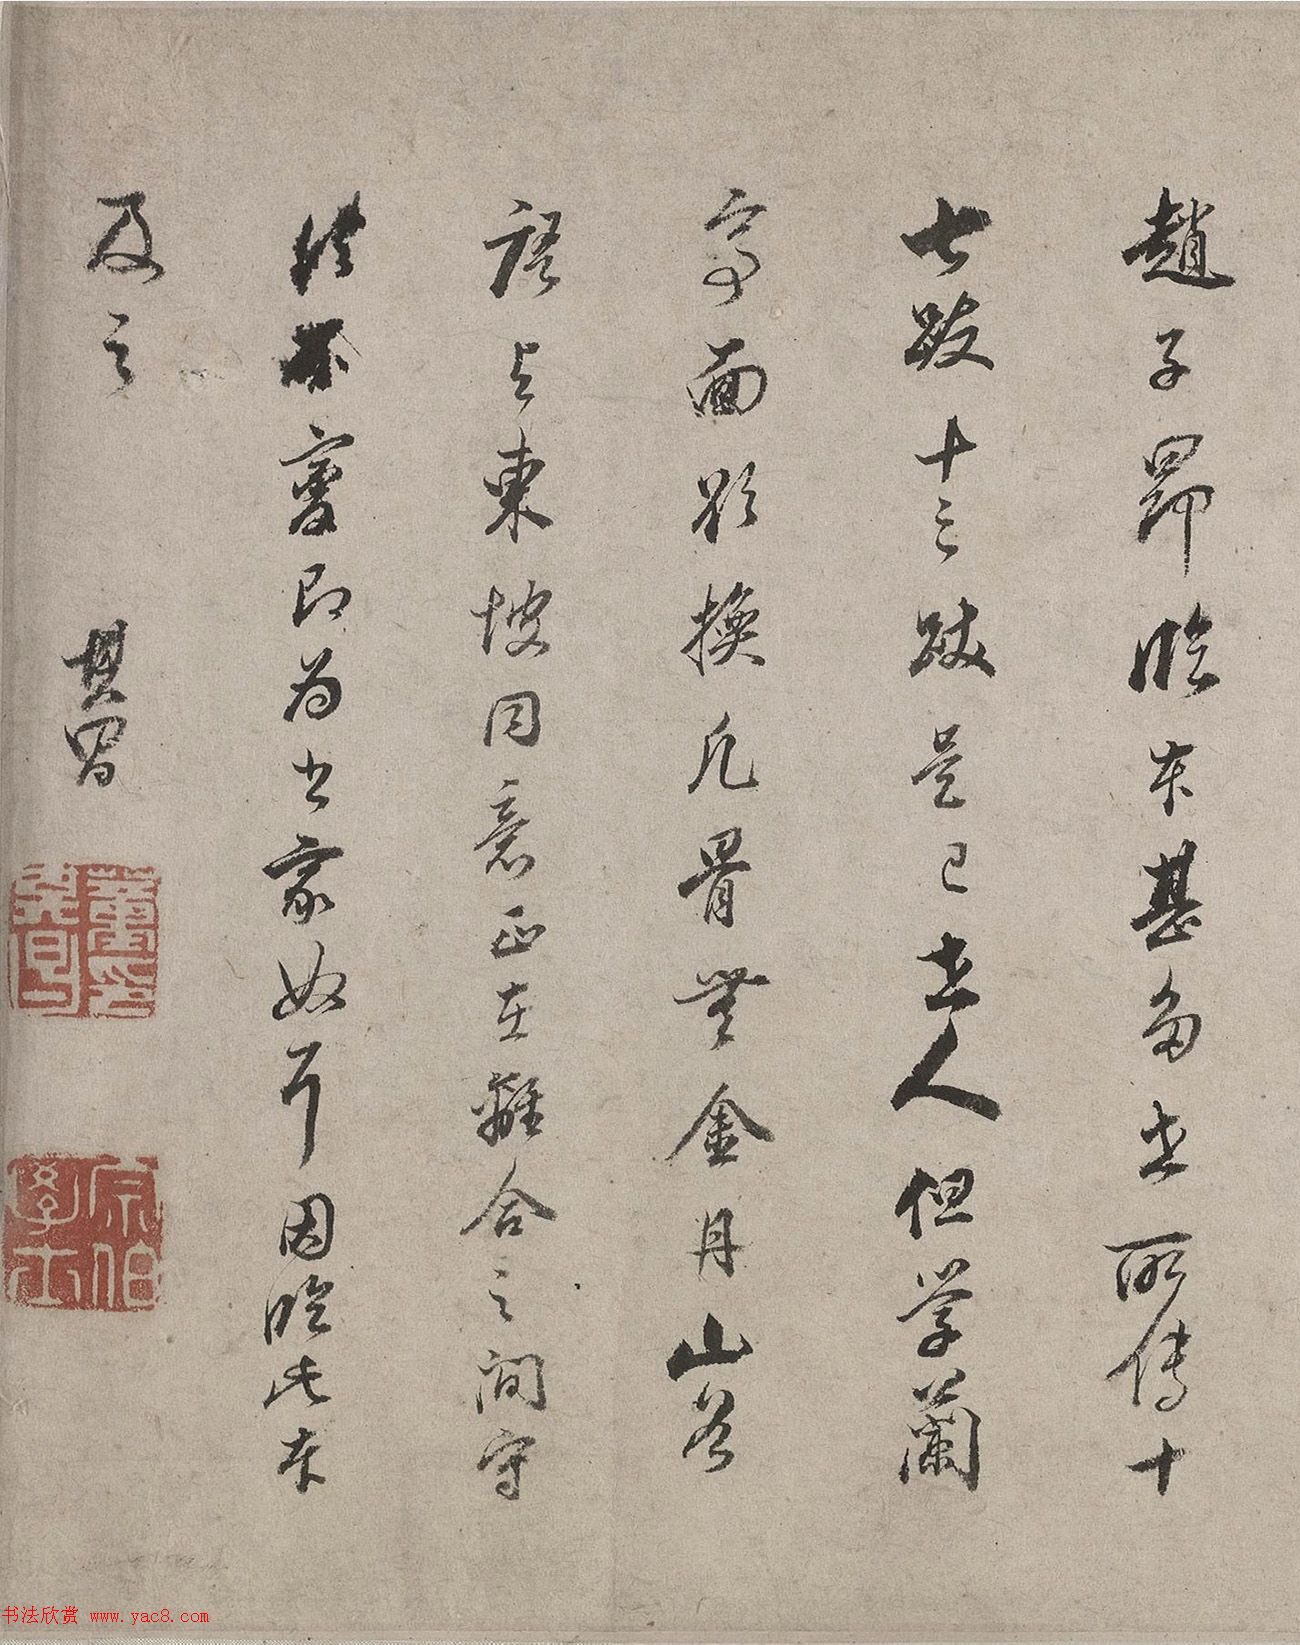 趙子昂臨本甚多世所傳十
七跋十三跋是已世人但学蘭
亭面欲換凡骨無金丹山谷
語与東坡同意正在離合之間守
法不變即為书家奴耳因臨此本
及之
其昌
董其昌印
宗伯學士
书法欣赏 www.yac8.com